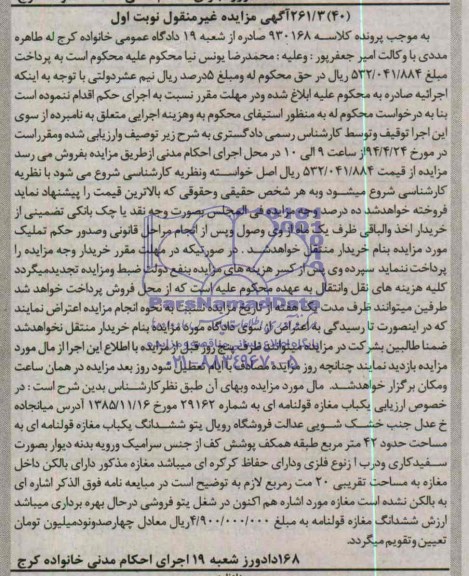 (۴۰) ۲۶۱/۳آگهی مزایده غیرمنقول نوبت اول
به موجب پرونده کلاسه ۹۳۰۱۶۸ صادره از شعبه ۱۹ دادگاه عمومی خانواده کرج له طاهره
مددی با وکالت امیر جعفرپور : وعلیه : محمدرضا یونس نیا محکوم علیه محکوم است به پرداخت
مبلغ ۵۳۲/۰۴۱/۸۸۴ ریال در حق محکوم له ومبلغ ۵درصد ریال نیم عشردولتی با توجه به اینکه
اجرائیه صادره به محکوم علیه ابلاغ شده ودر مهلت مقرر نسبت به اجرای حکم اقدام ننموده است
بنا به درخواست محکوم له به منظور استیفای محکوم به وهزینه اجرایی متعلق به نامبرده از سوی
این اجرا توقیف وتوسط کارشناس رسمی دادگستری به شرح زیر توصیف وارزیابی شده ومقرراست
در مورخ ۹۴/۴/۲۴از ساعت ۹ الی ۱۰ در محل اجرای احکام مدنی ازطریق مزایده بفروش می رسد
مزایده از قیمت ۵۳۲/۰۴۱/۸۸۴ ریال اصل خواسته ونظریه کارشناسی شروع می شود با نظریه
کارشناسی شروع میشود وبه هر شخص حقیقی وحقوقی که بالاترین قیمت را پیشنهاد نماید
فروخته خواهدشد ده درصد مزایده فی المجلس بصورت وجه نقد یا چک بانکی تضمینی از
خریدار اخذ والباقی ظرف یک ماه از وی وصول وپس از انجام مراحل قانونی وصدور حکم تملیک
مورد مزایده بنام خریدار منتقل خواهدشد. در صورتیکه در مهلت مقرر خریدار وجه مزایده را
پرداخت ننماید سپرده وی پس از کسر هزینه های مزایده بنفع دولت ضبط ومزایده تجدیدمیگردد
کلیه هزینه های نقل وانتقال به عهده محکوم علیه است که از محل فروش پرداخت خواهد شد
طرفین میتوانند ظرف مدت یک هفته از تاریخ مزایده نسبت به نحوه انجام مزایده اعتراض نمایند
که در اینصورت تا رسیدگی به اعتراض از سوی دادگاه مورد مزایده بنام خریدار منتقل نخواهدشد
ضمنا طالبین بشرکت در مزایده میتوانند ظرف پنج روز قبل از مزایده با اطلاع این اجرا از مال مورد
مزایده بازدید نمایند چنانچه روز مزایده مصادف با ایام تعطیل شود روز بعد مزایده در همان ساعت
ومکان برگزار خواهدشد. مال مورد مزایده وبهای آن طبق نظر کارشناس بدین شرح است : در
خصوص ارزیابی یکباب مغازه قولنامه ای به شماره ۲۹۱۶۲ مورخ ۱۳۸۵/۱۱/۱۶ آدرس میانجاده
خ عدل جنب خشک شویی عدالت فروشگاه رویال پتو ششدانگ یکباب مغازه قولنامه ای به
مساحت حدود ۴۲ متر مربع طبقه همکف پوشش کف از جنس سرامیک ورویه بدنه دیوار بصورت
سفیدکاری ودرب ا زنوع فلزی ودارای حفاظ کرکره ای میباشد مغازه مذکور دارای بالکن داخل
مغازه به مساحت تقریبی ۲۰ مت رمربع لازم به توضیح است در مبایعه نامه فوق الذکر اشاره ای
به بالکن نشده است مغازه مورد اشاره هم اکنون در شغل پتو فروشی درحال بهره برداری میباشد
ارزش ششدانگ مغازه قولنامه به مبلغ ۴/۹۰۰/۰۰۰/۰۰۰ریال معادل چهارصدونودمیلیون تومان
تعیین وتقویم میگردد.
۱۶۸دادورز شعبه ۱۹ اجرای احکام مدنی خانواده کرج
ParsNamadData
۰۲۱-۸۸۳۴۹۶۷۰-۵